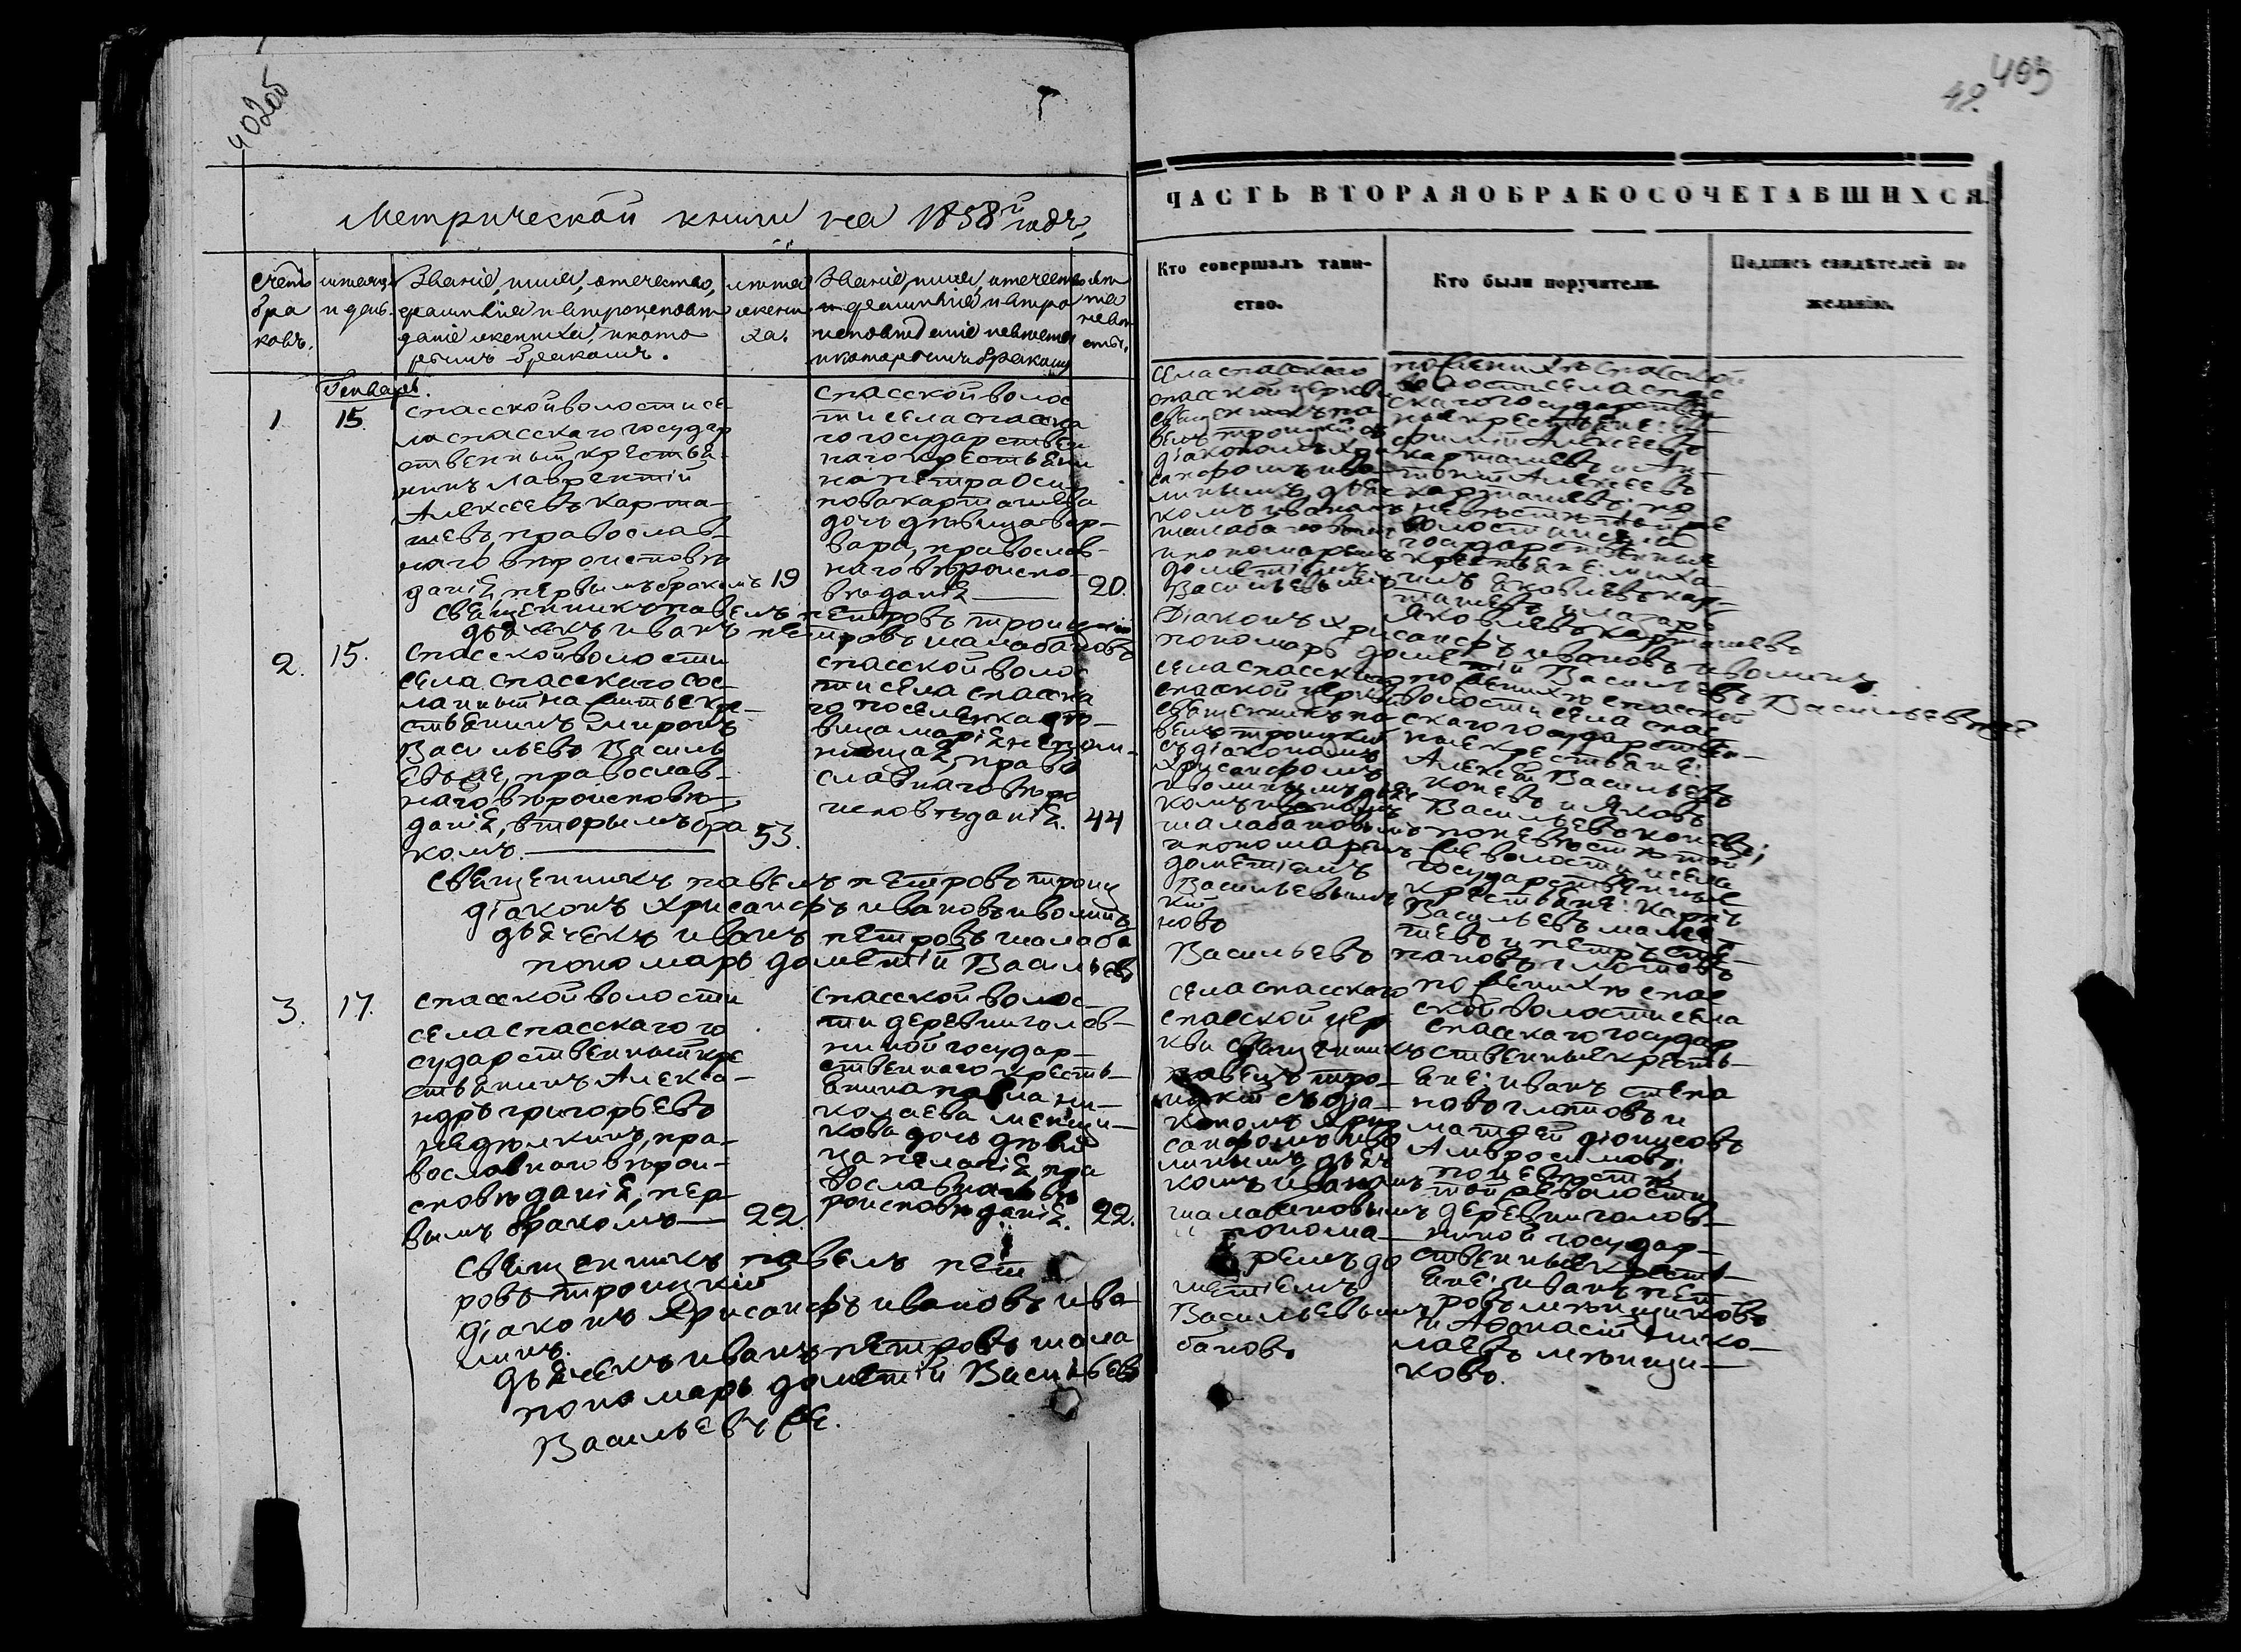 402об
Метрической книги на 1858й годъ,
Счетъ браковъ.
мѣсяцъ и день.
Званіе, имя, отечество,
фамилія и вѣроисповѣ
даніе жениха, и кото
рымъ бракомъ.
лѣта
жени
ха.
Званіе, имя, отечество
и фамилія и вѣро
исповѣданіе невѣсты
и которымъ бракомъ
лѣ
та
невѣ
сты.
Генварь.
1.
15.
Спасской волости се
ла спасскаго государ
ственный крестья
нинъ Лаврентій
Алексеевъ карта
шевъ, православ
наго вѣроисповѣ
данія, первымъ бракомъ
19
Спасской волос
ти села спасска
го государствен
наго крестьяни
на петра Оси
пова карташева
дочь дѣвица вар-
вара, православ-
наго вѣроиспо-
вѣданія
20.
Священникъ павелъ петровъ троицкій
дьячекъ иванъ петровъ шалабановъ
2.
15.
Спасской волости
села спасскаго сос
ланный на житье кре-
стьянинъ миронъ
Васильевъ Василь
евъ же, православ-
наго вѣроисповѣ-
данія, вторымъ бра
комъ.
53.
спасской волос
ти села спасска
го поселенка вдо-
вица марія
право
славнаго вѣро
исповѣданія.
44
Священникъ павелъ петровъ троиц
діаконъ Хрисанфъ ивановъ иволинъ
дьячекъ иванъ петровъ шалаба
пономарь дометій Васильевъ
3.
17.
спасской волости
села спасскаго го
сударственный кре
стьянинъ Алекса-
ндръ григорьевъ
недѣлкинъ, пра-
вославнаго вѣрои-
сповѣданія, пер
вымъ бракомъ
22.
спасской волос-
ти деревни голов-
ниной государ-
ственнаго кресть-
янина павла ни-
колаева менщи-
кова дочь дѣви
ца пелагія пра
вославнаго вѣ
роисповѣданія.
22.
священникъ павелъ пет
ровъ троицкій
діаконъ Хрисанфъ ивановъ иво
линъ.
дьячекъ иванъ петровъ шала
пономарь дометій Васильевъ
Васильевъ же.
403
42.
ЧАСТЬ ВТОРАЯ О БРАКОСОЧЕТАВШИХСЯ.
Кто совершалъ таин-
ство.
Кто были поручители.
Подпись свидѣтелей по
желанію.
села спасскаго
спасской церкви
священникъ па
велъ троицкій съ
діакономъ Хри
санфомъ иво-
линымъ, дьяч
комъ иваномъ
шалабановымъ
и пономаремъ
дометіемъ
Васильевымъ
по женихѣ спасской
волости села спас
скаго государствен
ные крестьяне:
Алексеевъ
карташевъ и Ан-
Алексеевъ
карташевъ; по
невѣстѣ той же
волости и села
государственные
крестьяне: миха
илъ яковлевъ кар
ташевъ и лазарь
яковлевъ карташевъ
Діаконъ хрисанфъ ивановъ иволинъ
пономарь дометій Васильевъ Васильевъ же
села спасскаго
спасской церкви
священникъ па
велъ троицкій
съ діакономъ
хрисанфомъ
иволинымъ, дьяч
комъ иваномъ
шалабановымъ
и пономаремъ
дометіемъ
Васильевымъ
кій
новъ
Васильевъ
по женихѣ спасской
волости села спас
скаго государствен-
ные крестьяне:
Алексѣй Васильевъ
коневъ и яковъ
Васильевъ коневъ;
по невѣстѣ той
же волости и села
государственные
крестьяне: карпъ
Васильевъ
и петръ сте-
пановъ глотовъ
села спасскаго
спасской цер
кви священникъ
павелъ тро-
ицкій съ діа-
кономъ хри
санфомъ иво
линымъ дьяч
комъ иваномъ
шалабановымъ
и понома-
ремъ до
метіемъ
Васильевымъ
бановъ
по женихѣ спас
ской волости села
спасскаго государ
ственные кресть-
яне: иванъ степа
новъ глотовъ и
матвей діонисовъ
Амвросимовъ;
по невѣстѣ
той же волости
деревни голов-
ниной государ-
ственные кресть-
яне: иванъ пет
ровъ менщиковъ
и Афанасій нико-
лаевъ менщи-
ковъ.